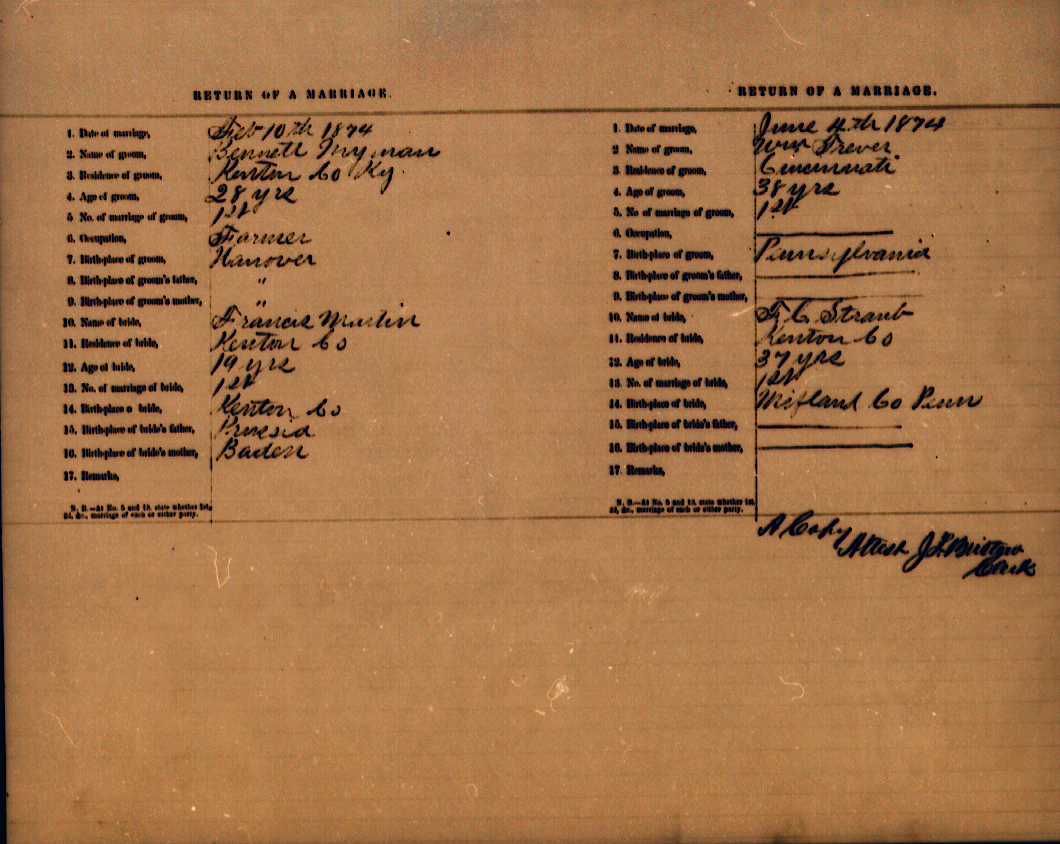 RETURN OF A MARRIAGE.
1. Date of marriage, Feb 10th 1874
2. Name of groom, Bennett
3. Residence of groom, Kenton Co Ky
4. Age of groom, 28 yrs
5 No. of marriage of groom, 1st
6. Occupation, Farmer
7. Birth-place of groom, Hanover
8. Birth-place of groom's father, "
9. Birth-place of groom's mother, "
10. Name of bride, Francis Martin
11. Residence of bride, Kenton Co
12. Age of bride, 19 yrs
13. No. of marriage of bride, 1st
14. Birth-place o bride, Kenton Co
15. Birth-place of bride's father, Prussia
16. Birth-place of bride's mother, Baden
17. Remarks,
N. B.—At No. 5 and 13, state whether 1st,
2d, &c., marriage of each or either party.
RETURN OF A MARRIAGE.
1. Date of marriage, June 4th 1874
2 Name of groom, Wm Trever
3. Residence of groom, Cincinnati
4. Age of groom, 38 yrs
5. No. of marriage of groom, 1st
6. Occupation,
7. Birth-place of groom, Pennsylvania
8. Birth-place of groom's father,
9. Birth-place of groom's mother,
10. Name of bride, F. C. Straub
11. Residence of bride, Kenton Co
12. Age of bride, 37 yrs
13. No. of marriage of bride, 1st
14. Birth-place of bride, Mifland Co Penn
15. Birth-place of bride's father,
16. Birth-place of bride's mother,
17 Remarks,
N. B.—At No. 5 and 13, state whether 1st,
2d, &c., marriage of each or either party.
A Copy
Attest J. L. Bristow
Clerk